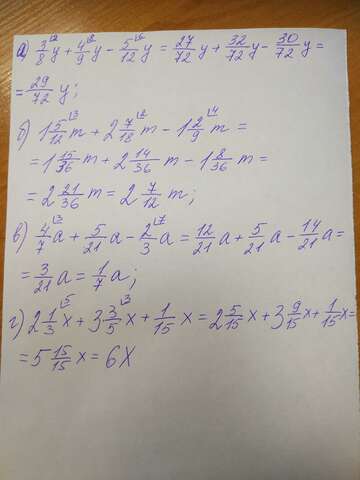 а) 3/8 y + 4/9 y - 5/12 y = 27/72 y + 32/72 y - 30/72 y =
= 29/72 y;
б) 1 5/12 m + 2 7/18 m - 1 2/9 m =
= 1 15/36 m + 2 14/36 m - 1 8/36 m =
= 2 21/36 m = 2 7/12 m;
в) 4/7 a + 5/21 a - 2/3 a = 12/21 a + 5/21 a - 14/21 a =
= 3/21 a = 1/7 a;
г) 2 1/3 x + 3 3/5 x + 1/15 x = 2 5/15 x + 3 9/15 x + 1/15 x =
= 5 15/15 x = 6x